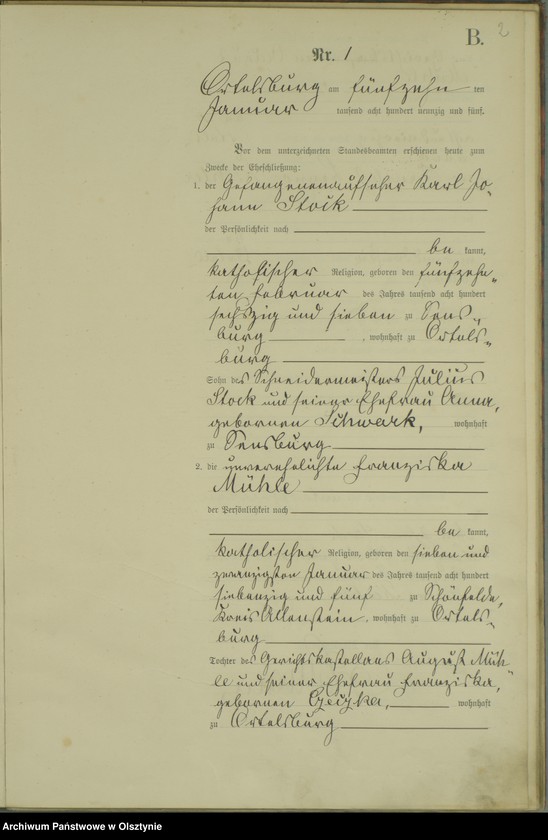 B. 2
Nr. 1
Ortelsburg am fünfzehn ten
Januar tausend acht hundert neunzig und fünf.
Vor dem unterzeichneten Standesbeamten erschienen heute zum
Zwecke der Eheschließung:
1. der Gefangenenaufseher Karl Jo-
hann Stock
der Persönlichkeit nach
be kannt,
katholischer Religion, geboren den fünfzehn-
ten Februar des Jahres tausend acht hundert
sechszig und sieben zu Sens-
burg, wohnhaft zu Ortels-
burg
Sohn des Schneidermeisters Julius
Stock und seiner Ehefrau Anna,
gebornen Schwark, wohnhaft
zu Sensburg
2. die unverehelichte Franziska
Mühle
der Persönlichkeit nach
be kannt,
katholischer Religion, geboren den sieben und
zwanzigsten Januar des Jahres tausend acht hundert
siebenzig und fünf zu Schönfelde,
Kreis Allenstein, wohnhaft zu Ortels-
burg
Tochter des Gerichtskastellans August Müh-
le und seiner Ehefrau Franziska,
gebornen wohnhaft
zu Ortelsburg
Archiwum Państwowe w Olsztynie